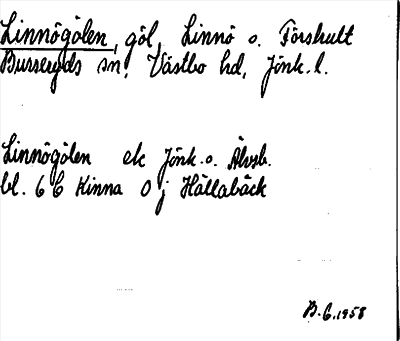 Linnögölen, göl, Linnö o. Forshult
Burseryds sn, Västbo hd, Jönk. l.
Linnögölen ek Jönk. o. Älvsb.
bl. 6 C Kinna 0 j Hällabäck
B. G. 1958